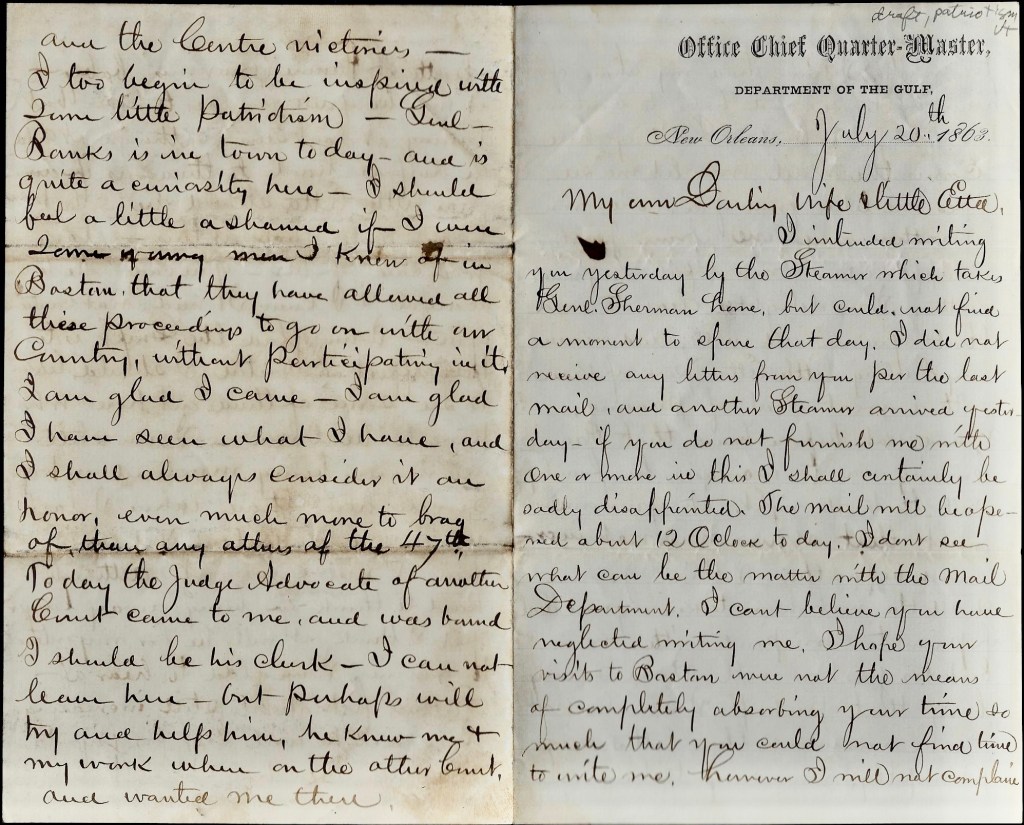 and the Centre victories —
I too begin to be inspired with
Some little Patriotism — Genl —
Banks is in town today — and is
quite a curiosity here — I should
feel a little ashamed if I were
Some young men I knew of in
Boston, that they have allowed all
these proceedings to go on with our
Country, without participating in it,
I am glad I came — I am glad
I have seen what I have, and
I shall always consider it an
honor, even much more to brag
of, than any others of the 47th.
To day the Judge Advocate of another
Court came to me, and was bound
I should be his clerk — I can not
leave here — but perhaps will
try and help him, he knew me &
my work when on the other Court,
and wanted me there.
draft, patriotism
Office Chief Quarter-Master,
DEPARTMENT OF THE GULF,
New Orleans, July 20th 1863.
My own Darling Wife & little Etta,
I intended writing
you yesterday by the Steamer which takes
Genl. Sherman home, but could not find
a moment to spare that day. I did not
receive any letters from you per the last
mail, and another Steamer arrived yester-
day — if you do not furnish me with
one or more in this I shall certainly be
sadly disappointed. The mail will be ope-
ned about 12 OClock to day. I dont see
what can be the matter with the Mail
Department. I cant believe you have
neglected writing me. I hope your
visits to Boston were not the means
of completely absorbing your time so
much that you could not find time
to write me, however I will not complain